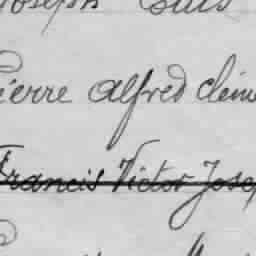 Joseph
Pierre Alfred Clém
Francis Victor Jose